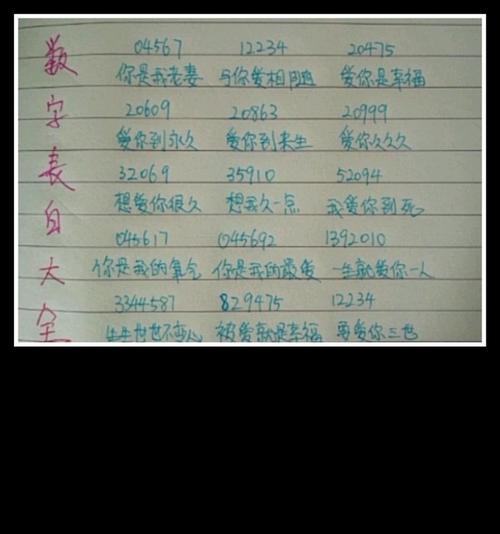 数字表白大全
04567 12234 20475
你是我老妻 与你爱相随 爱你是幸福
20609 20863 20999
爱你到永久 爱你到来生 爱你久久久
32069 35910 52094
想爱你很久 想我久一点 我爱你到死
045617 045692 1392010
你是我的氧气 你是我的最爱 一生就爱你一人
3344587 829475 12234
生生世世不变心 被爱就是幸福 要爱你三世